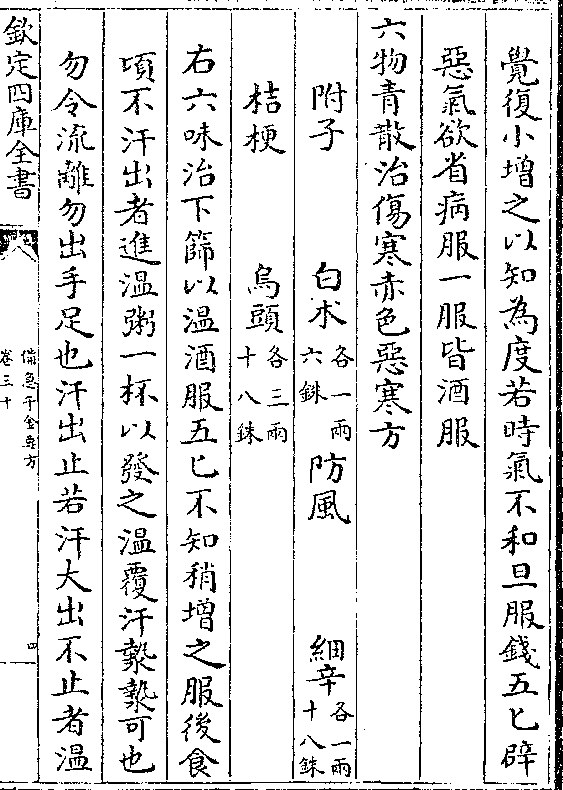 覺復小增之以知為度若時氣不和旦服錢五匕辟
惡氣欲省病服一服皆酒服
六物青散治傷寒赤色惡寒方
附子 白术各一兩六銖 防風 細辛各一兩十八銖
桔梗 烏頭各三兩十八銖
右六味治下篩以温酒服五匕不知稍增之服後食
頃不汗出者進温粥一杯以發之温覆汗漐漐可也
勿令流離勿出手足也汗出止若汗大出不止者温
欽定四庫全書
備急千金要方
卷三十
四